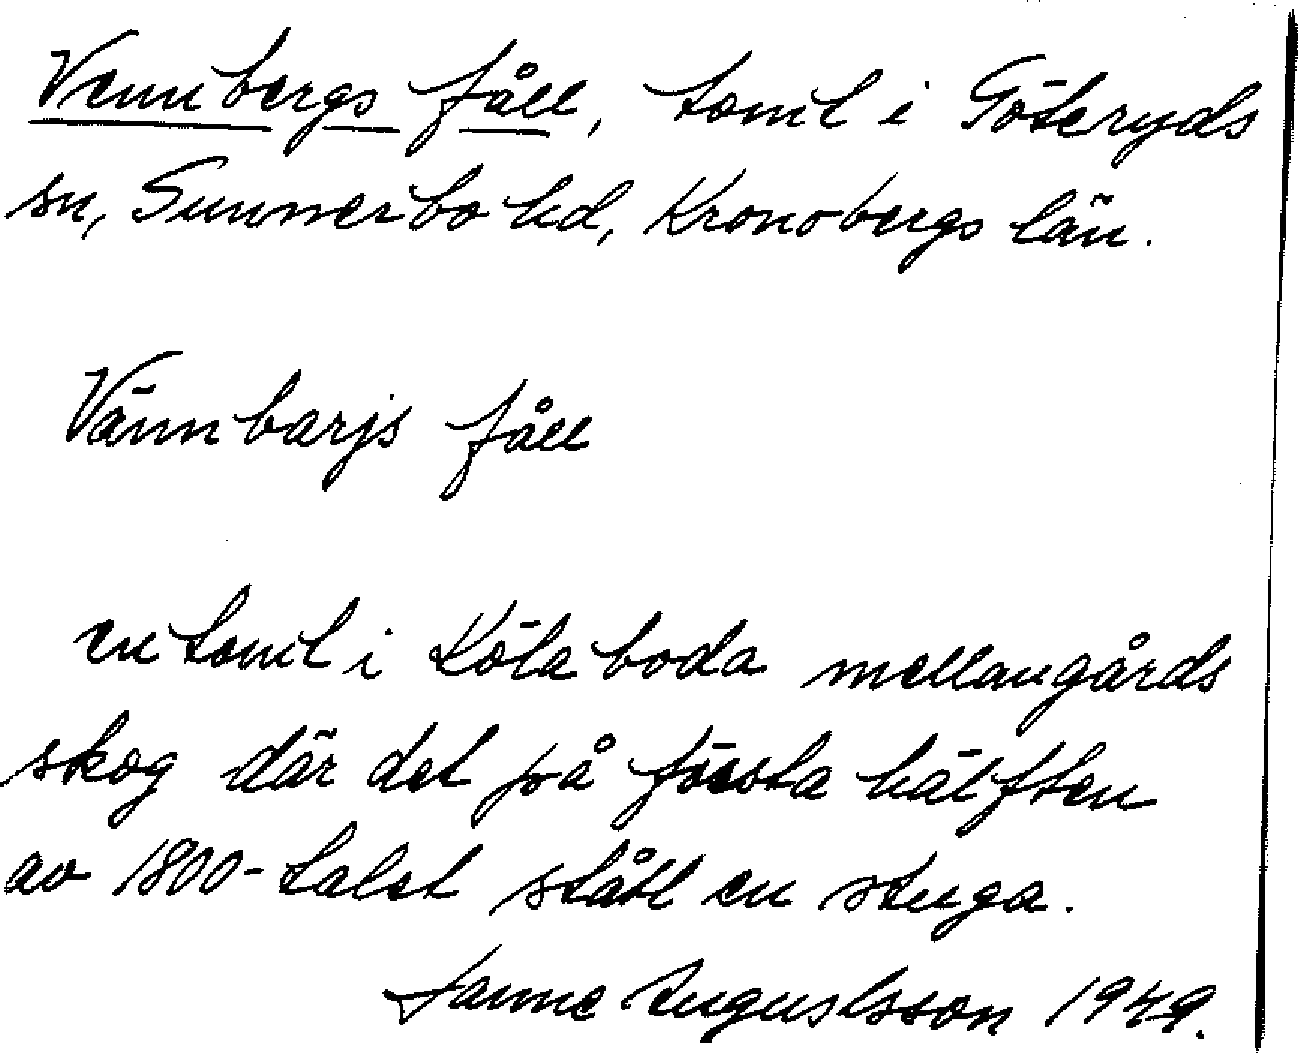 Vennbergs fåll, tomt i Göteryds
sn, Sunnerbo hd, Kronobergs län.
Vännbarjs fåll
en tomt i Köla boda mellangårds
skog där det på första hälften
av 1800-talet stått en stuga.
Janne Augustsson 1949.